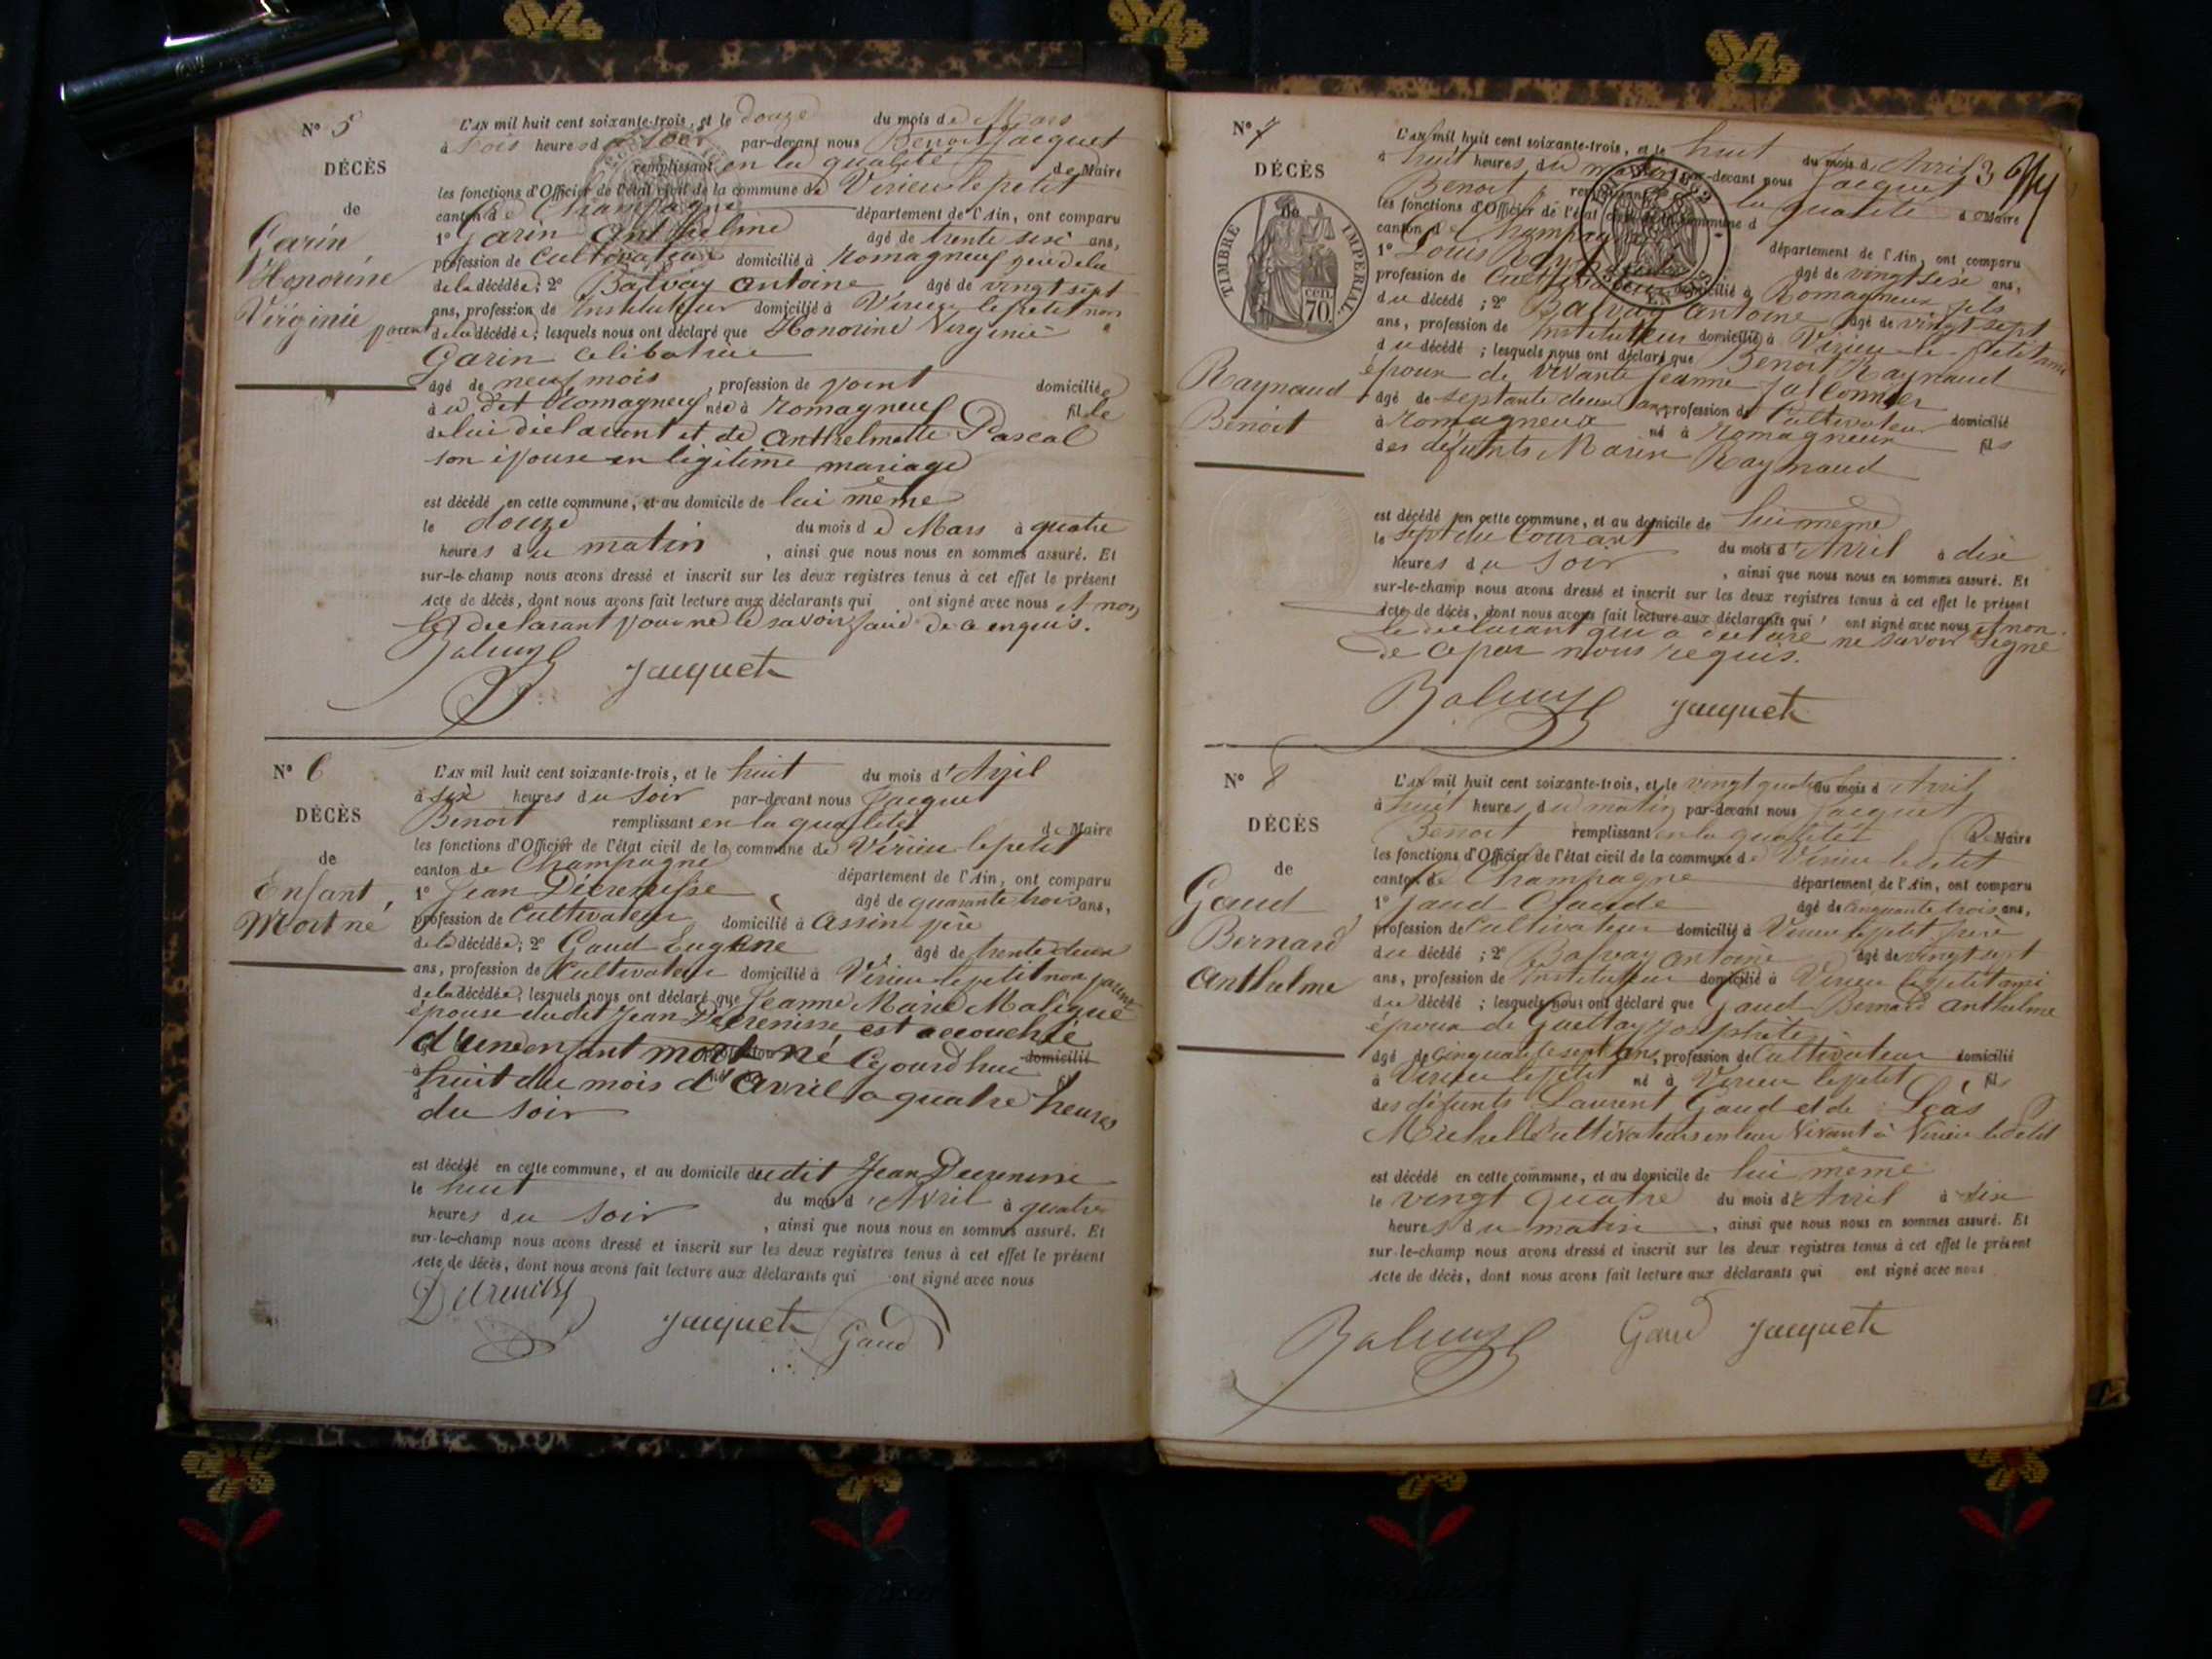 N° 5
DÉCÈS
de
Garin
Honorine
Virginie
L'AN mil huit cent soixante-trois, et le douze du mois de Mars
à heures d soir par-devant nous Benoit Jacquet
remplissant en la qualité de Maire
les fonctions d'Officier de l'état civil de la commune de Virieu le petit
canton de Champagne département de l'Ain, ont comparu
1° Garin Anthelme âgé de trente sixi ans,
profession de Cultivateur domicilié à Romagneux père de la
de la décédée; 2° Balvay Antoine âgé de vingt sept
ans, profession de Instituteur domicilié à Virieu le petit non
parent de la décédée; lesquels nous ont déclaré que Honorine Virginie
Garin Celibataire
âgé de neuf mois, profession de point domiciliée
à u dit Romagneux née à Romagneux fille
de lui déclarant et de Anthelmette Pascal
son épouse en légitime mariage
est décédé en cette commune, et au domicile de lui même
le douze du mois de Mars à quatre
heures du matin, ainsi que nous nous en sommes assuré. Et
sur-le-champ nous avons dressé et inscrit sur les deux registres tenus à cet effet le présent
Acte de décès, dont nous avons fait lecture aux déclarants qui ont signé avec nous et non
le déclarant pour ne le savoir faire de ce enquis.
Balvay Jacquet
N° 6
DÉCÈS
de
Enfant
Mort né
L'AN mil huit cent soixante-trois, et le huit du mois d'Avril
à six heures du soir par-devant nous Jacquet
Benoit remplissant en la qualité de Maire
les fonctions d'Officier de l'état civil de la commune de Virieu le petit
canton de Champagne département de l'Ain, ont comparu
1° Jean Décrenisse âgé de quarante trois ans,
profession de Cultivateur domicilié à Assin père
de la décédée; 2° Gaud Eugène âgé de trente deux
ans, profession de Cultivateur domicilié à Virieu le petit non parent
de la décédée; lesquels nous ont déclaré que Jeanne Marie Maligue
épouse dudit Jean Décrenisse, est accouchée
d'un enfant mort né Cejourd'hui domicilié
huit du mois d'avril a quatre heures
du soir
est décédé en cette commune, et au domicile dudit Jean Decrenisse
le huit du mois d'Avril à quatre
heures du soir, ainsi que nous nous en sommes assuré. Et
sur-le-champ nous avons dressé et inscrit sur les deux registres tenus à cet effet le présent
Acte de décès, dont nous avons fait lecture aux déclarants qui ont signé avec nous
Decrenisse Jacquet Gaud
N° 7
DÉCÈS
de
TIMBRE IMPERIAL
CCIL
70
Raynaud
Benoit
L'AN mil huit cent soixante-trois, et le huit du mois d'Avril
à huit heures du matin par-devant nous Jacquet
Benoit remplissant la qualité d Maire
les fonctions d'Officier de l'état civil de la commune d
canton de Champagne département de l'Ain, ont comparu
1° Louis Raynaud âgé de vingt sixi ans,
profession de Cultivateur domicilié à Romagneux fils
du décédé; 2° Balvay Antoine âgé de vingt sept
ans, profession de Instituteur domicilié à Virieu le petit ami
du décédé; lesquels nous ont déclaré que Benoit Raynaud
époux de vivante Jeanne Jallonnier
âgé de septante deux ans, profession de Cultivateur domicilié
à Romagneux né à Romagneux fils
des défunts Marin Raynaud
est décédé en cette commune, et au domicile de lui même
le sept du Courant du mois d'Avril à dix
heures du soir, ainsi que nous nous en sommes assuré. Et
sur-le-champ nous avons dressé et inscrit sur les deux registres tenus à cet effet le présent
Acte de décès, dont nous avons fait lecture aux déclarants qui ont signé avec nous et non
le déclarant qui a déclaré ne savoir signé
de ce par nous requis.
Balvay Jacquet
N° 8
DÉCÈS
de
Gaud
Bernard
Anthelme
L'AN mil huit cent soixante-trois, et le vingt quatre du mois d Avril
à huit heures du matin par-devant nous Jacquet
Benoit remplissant en la qualité de Maire
les fonctions d'Officier de l'état civil de la commune de Virieu le petit
canton de Champagne département de l'Ain, ont comparu
1° Gaud Claude âgé de cinquante trois ans,
profession de Cultivateur domicilié à Virieu le petit frère
du décédé; 2° Balvay Antoine âgé de vingt sept
ans, profession de Instituteur domicilié à Virieu le petit ami
du décédé; lesquels nous ont déclaré que Gaud Bernard Anthelme
époux de Guettay Josephite
âgé de Cinquante sept ans, profession de Cultivateur domicilié
à Virieu le petit né à Virieu le petit fils
des défunts Laurent Gaud et de Léas
Michelle Cultivateurs en leur vivant à Virieu le Petit
est décédé en cette commune, et au domicile de lui même
le vingt quatre du mois d'Avril à six
heures du matin, ainsi que nous nous en sommes assuré. Et
sur-le-champ nous avons dressé et inscrit sur les deux registres tenus à cet effet le présent
Acte de décès, dont nous avons fait lecture aux déclarants qui ont signé avec nous
Balvay Gaud Jacquet